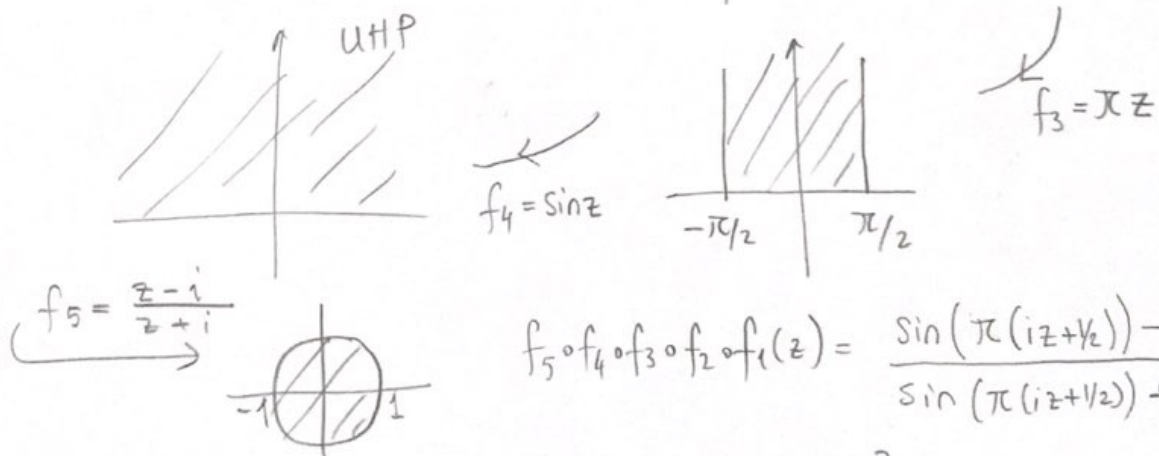 UHP
f₃ = πz
f₄ = sinz
-π/2 π/2
f₅ = z-i / z+i
-1 1
f₅∘f₄∘f₃∘f₂∘f₁(z) = sin(π(iz+1/2)) - / sin(π(iz+1/2)) +